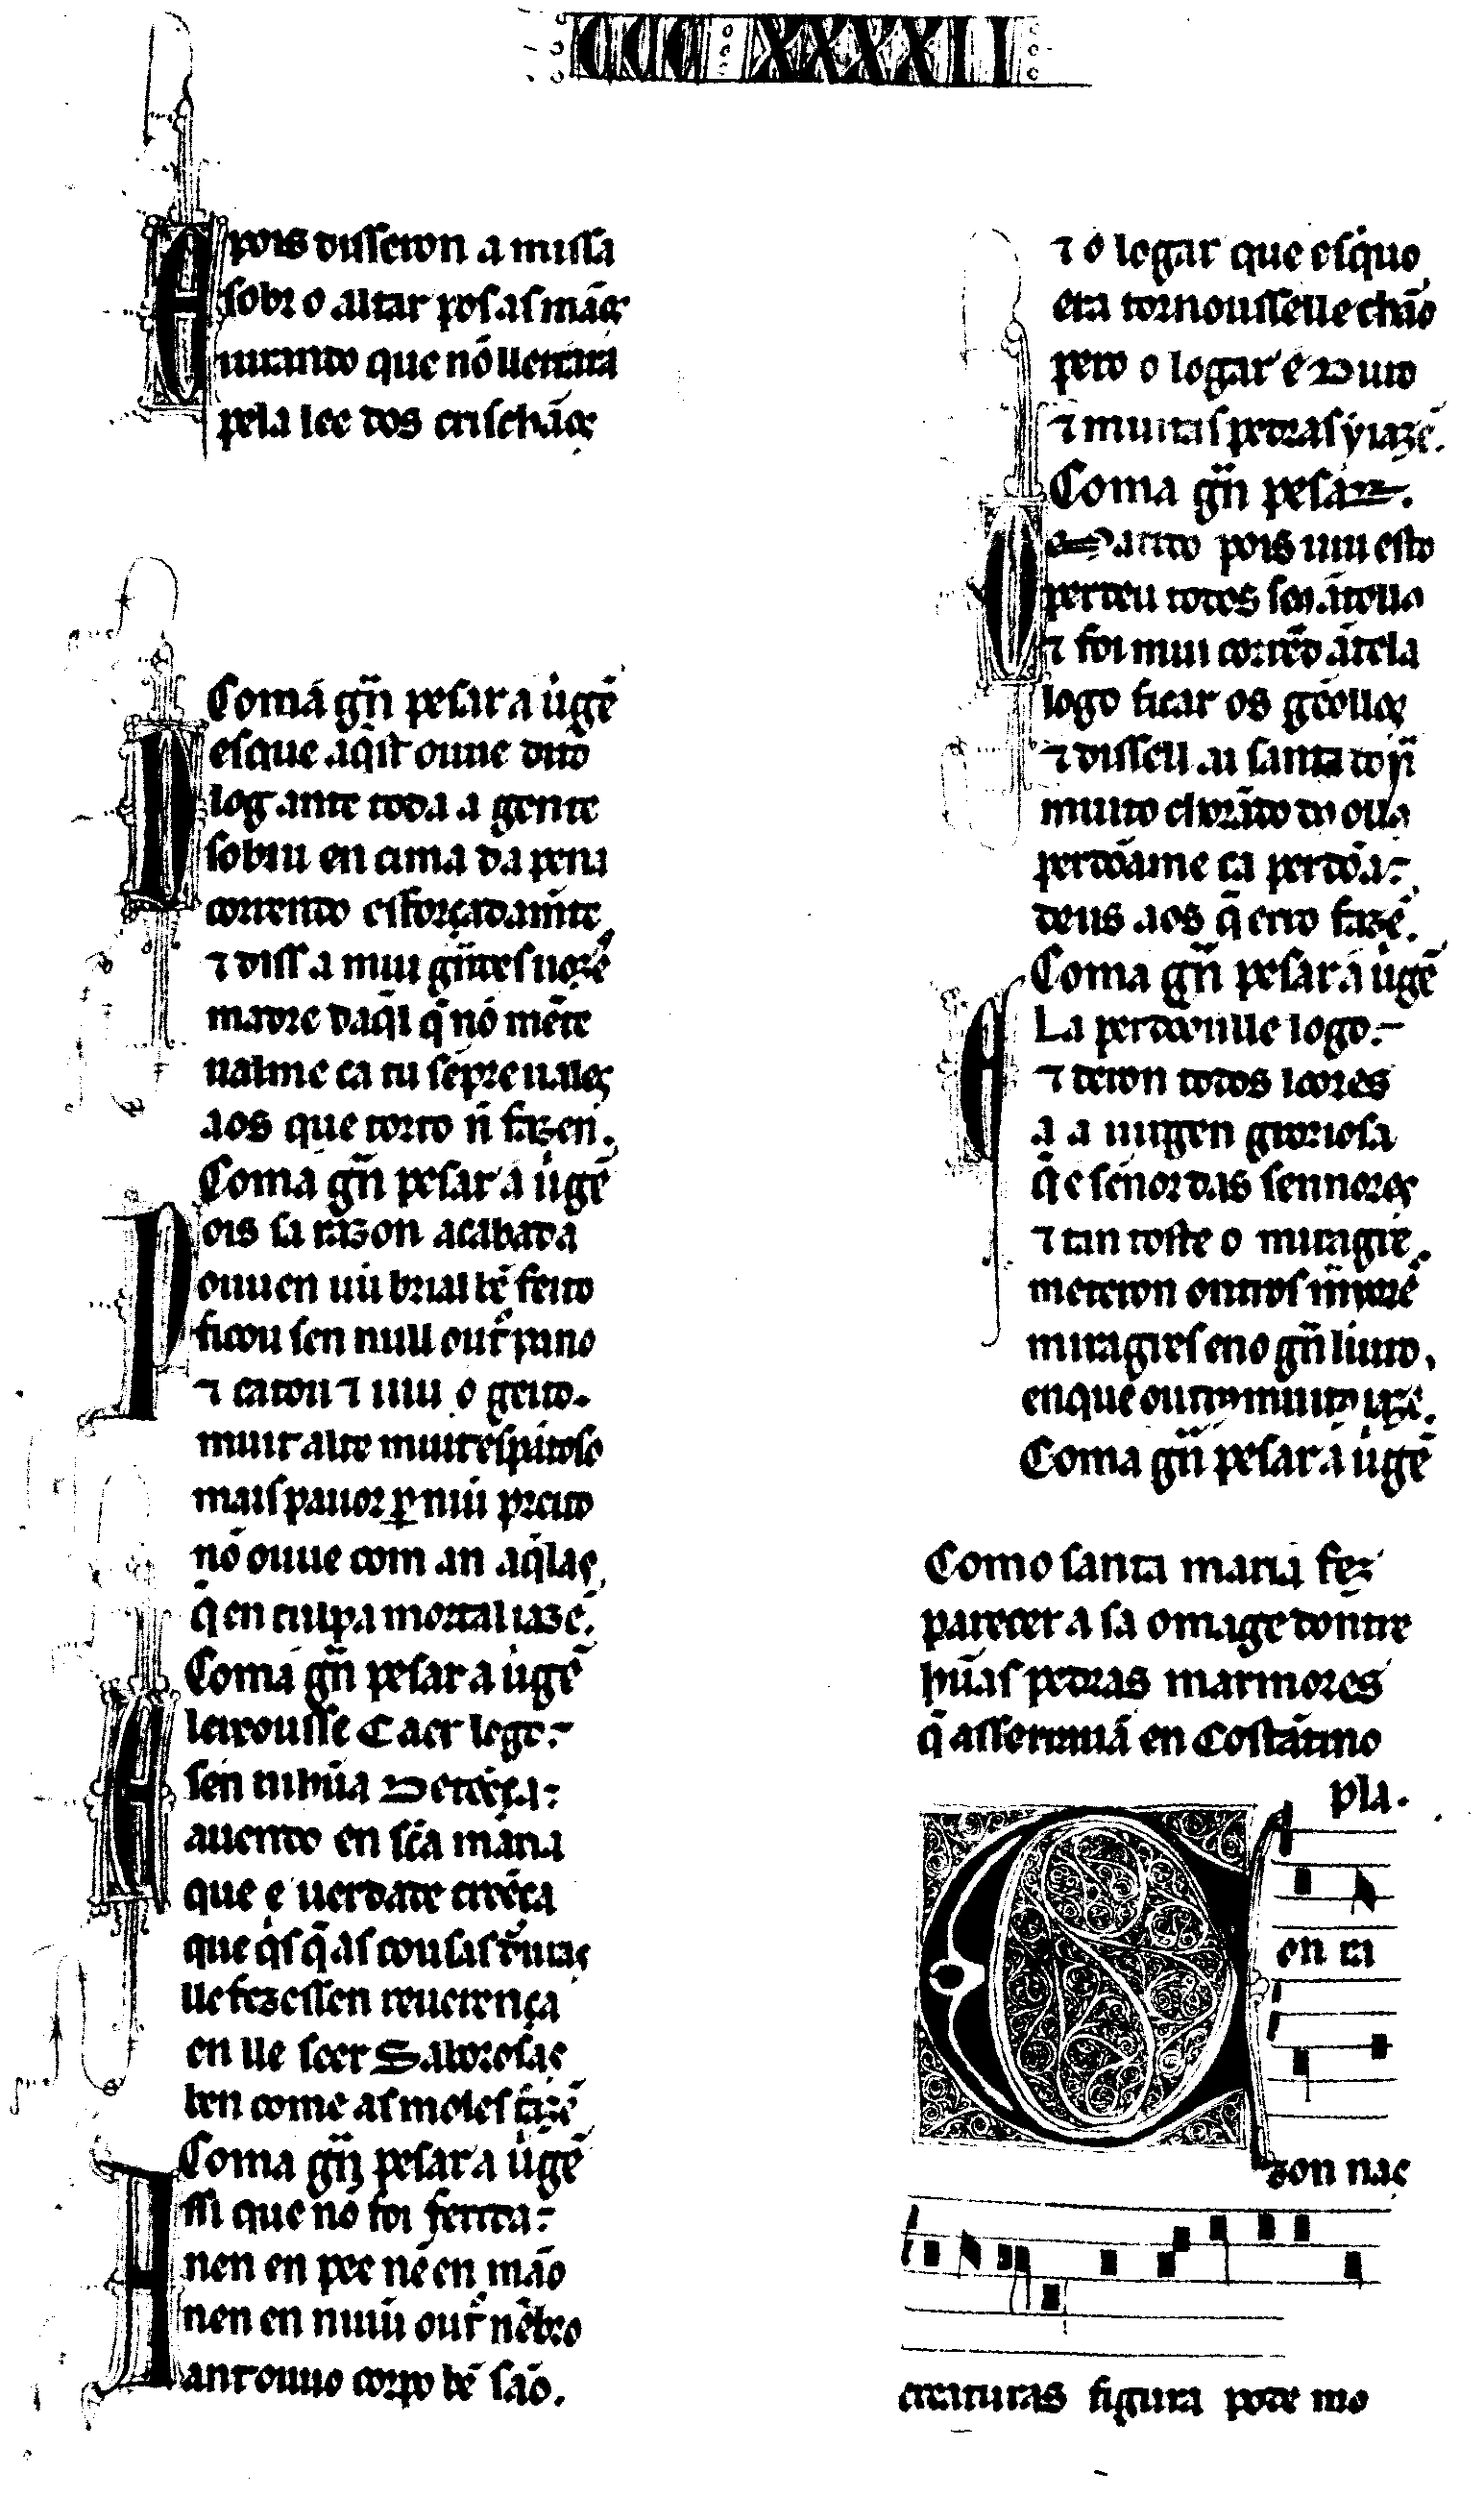 CCC XXXXII
Apois disseron a missa
sobr o altar pos as mãos
iurando que nõ uentira
pela lee dos crischãos
Coma gñ pesar a uigẽ
Desque aqst ouue dito
log ante toda a gente
sobiu en cima da pena
correndo esforçadamẽte
⁊ diss a mui grãdes uozes
madre daql q̃ nõ mẽte
ualme ca tu sẽpre uales
aos que torto ñ fazen.
Coma gñ pesar a uigẽ
Pois sa razon acabada
ouu en uũ brial bẽ feito
ficou sen null outr pano
⁊ catou ⁊ uiu o geito.
muit alte muit espãtoso
mais pauor per niũ preito
nõ ouue com an aqlas
q̃ en culpa mortal iazẽ.
Coma gñ pesar a uigẽ
Leixousse caer logo
sen nihũa deteẽça
auendo en scã maria
que e uerdade creẽça
que q̃s q̃ as cousas duras
lle fezessen reuerença
en lle seer saborosas
ben come as moles fazẽ
Coma gñ pesar a uigẽ
Assi que nõ foi ferida
nen en pee nẽ en mão
nen en niuũ outr nẽbro
ant ouuo corpo bẽ são.
⁊ o logar que esqiuo
era tornousselle chão
pero o logar e duro
⁊ muitas pedras y iazẽ.
Coma gñ pesar.
O marido pois uiu esto
perdeu todos seus ãtollos
⁊ foi mui corrẽd ãt ela
logo ficar os geollos
⁊ disseu ai santa toda
muito chorãdo dos ollos
perdõame ca perdõa
deus aos q̃ erro fazẽ.
Coma gñ pesar a uigẽ
Ela perdooulle logo
⁊ deron todos loores
a a uirgen groriosa
q̃ e señor das sennores
⁊ tan toste o miragre
meteron outros mayores
miragres eno gñ liuro,
en que outros muitos iazẽ.
Coma gñ pesar a uigẽ
Como santa maria fez
parecer a sa omage dontre
hũas pedras marmores
q̃ asserrauã en Costãtino
pla.
Con ra
zon nas
creaturas figura pode mo